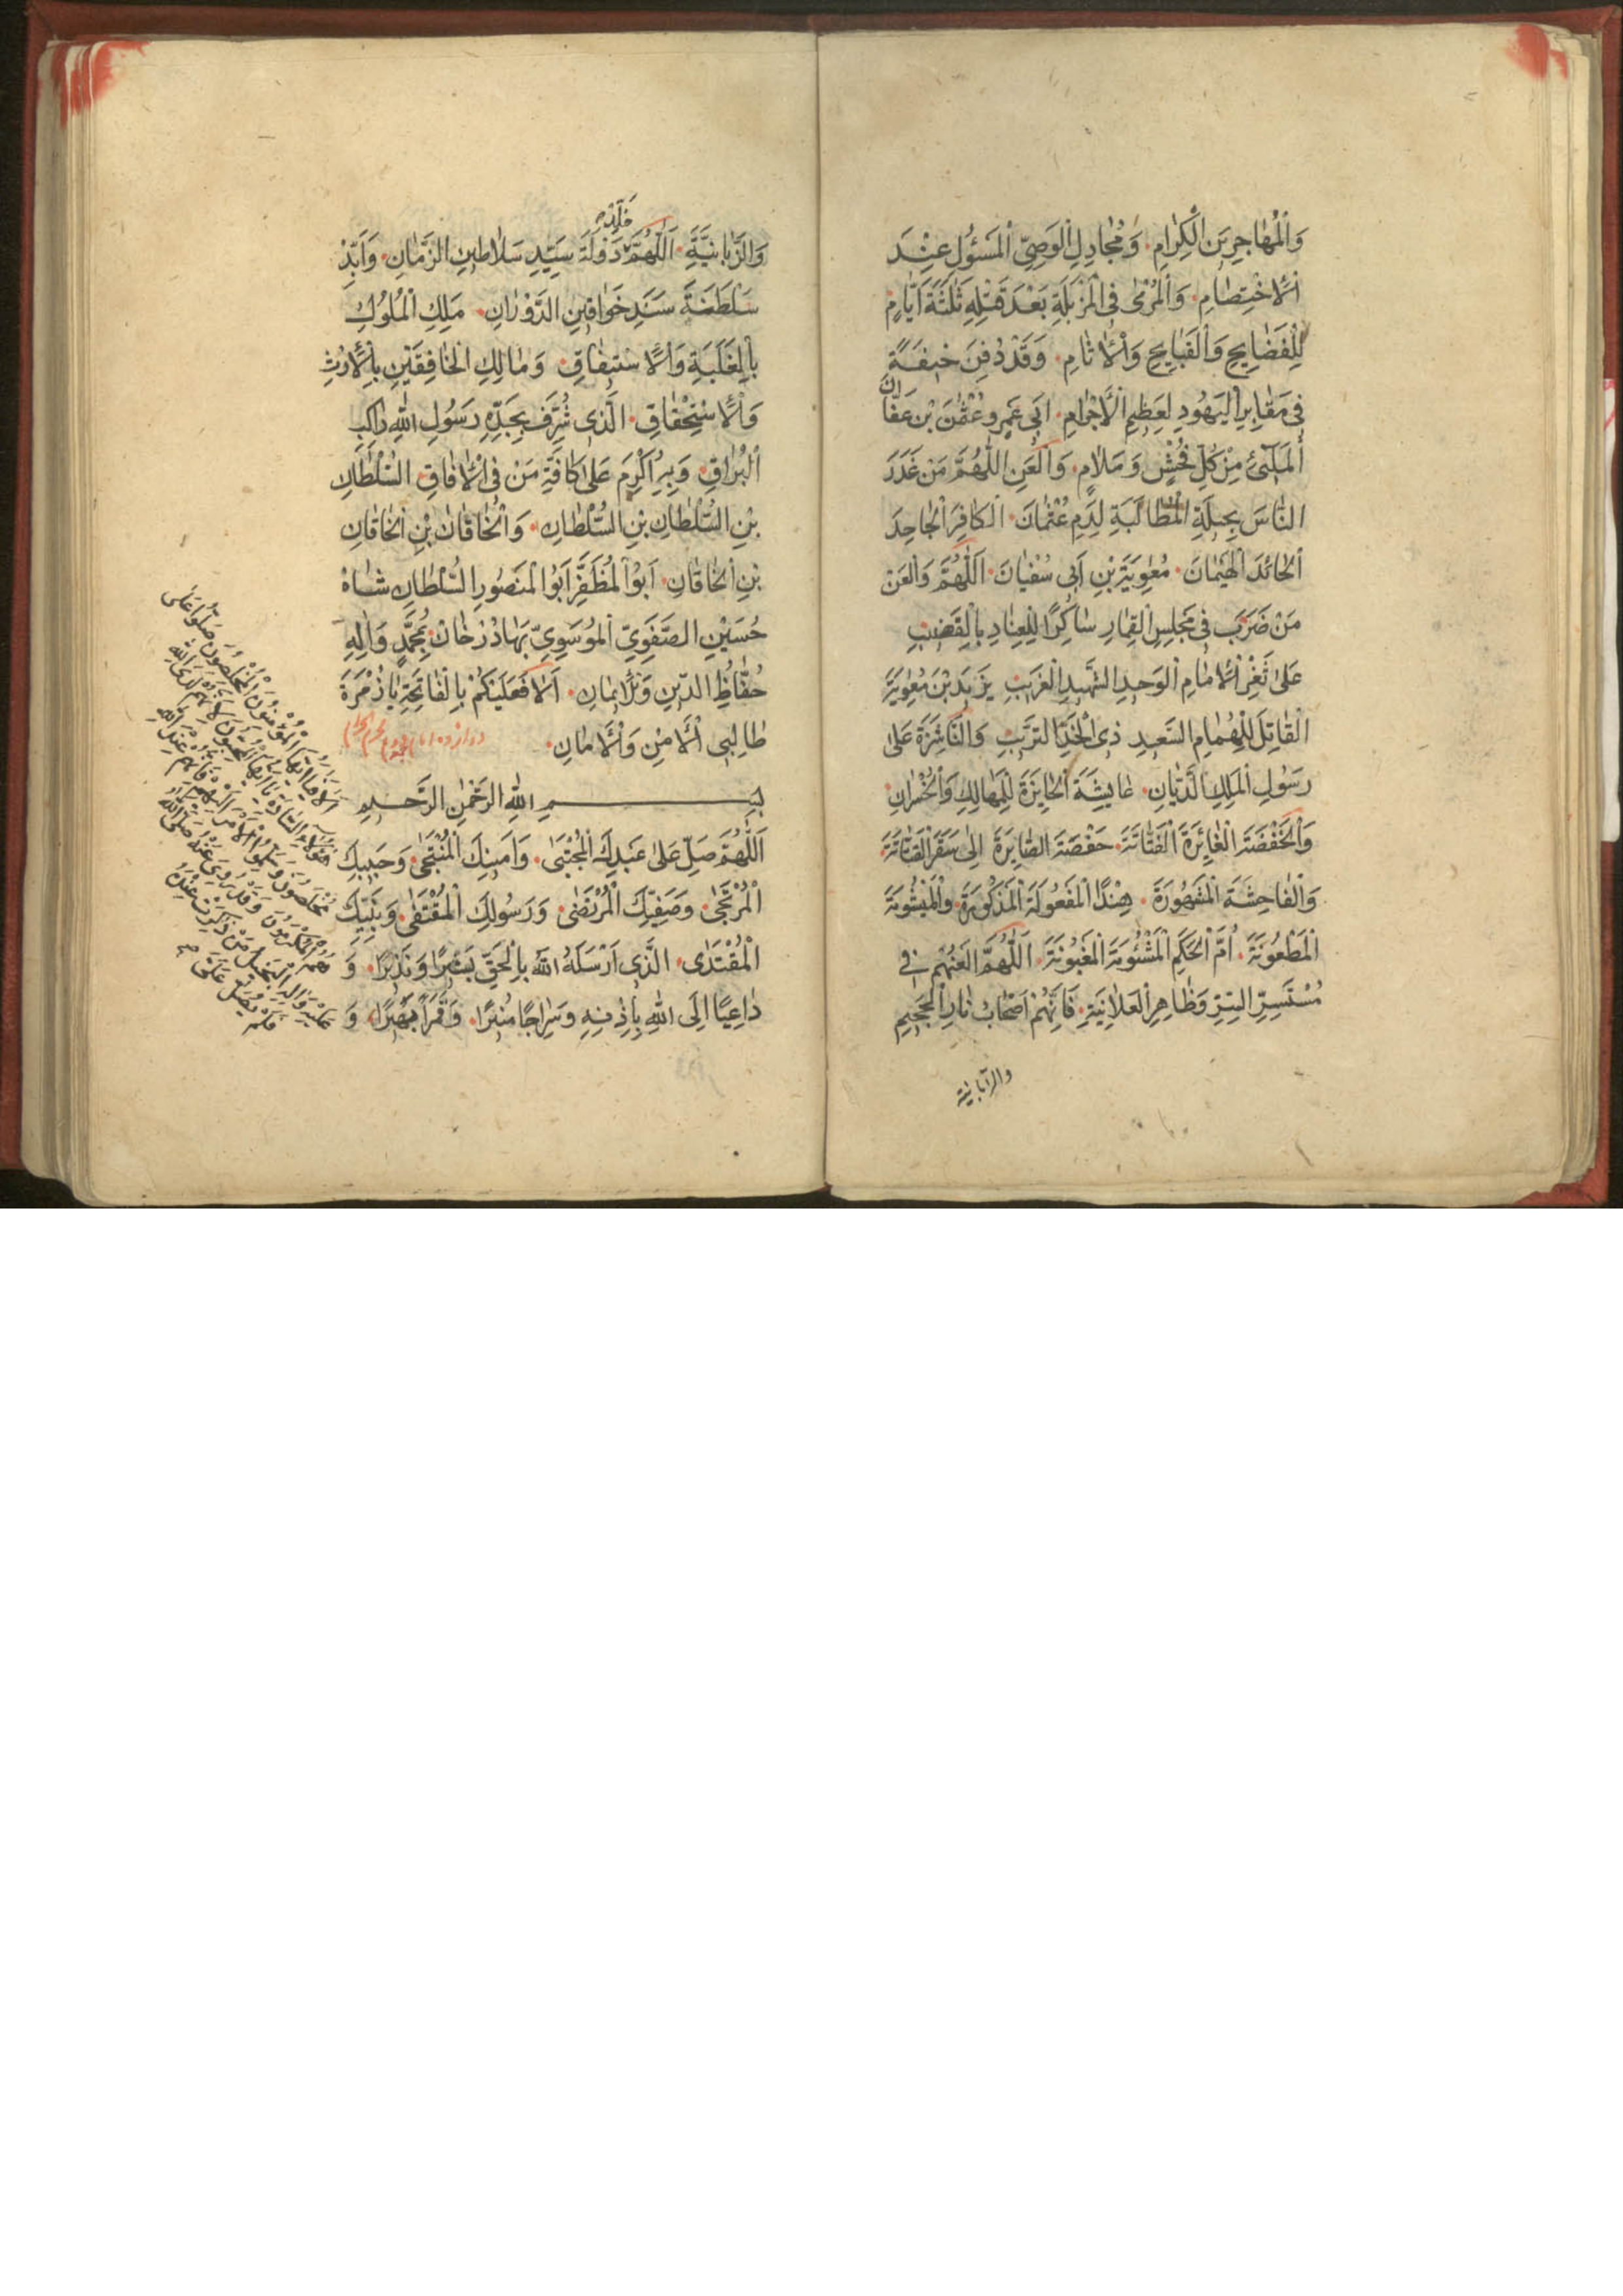 وَالْمُهَاجِرِينَ الْكِرَامِ وَمُجَادِلِ الْوَصِيِّ الْمَسْئُولِ عِنْدَ
الْاِخْتِصَامِ وَالْمُرْمٰى فِى الْمَزْبَلَةِ بَعْدَ قَتْلِهِ ثَلٰثَةَ اَيَّامٍ
لِلْفَضَايِحِ وَالْقَبَايِحِ وَالْاٰثَامِ وَقَدْ دُفِنَ خِيفَةً
فِى مَقَابِرِ الْيَهُودِ لِعَظِيمِ الْاَجْرَامِ اَبِى عَمْرٍو عُثْمٰنَ بْنِ عَفَّانَ
الْمَلِىْٔ مِنْ كُلِّ فُحْشٍ وَمَلَامٍ وَالْعَنِ اللّٰهُمَّ مَنْ غَدَرَ
النَّاسَ بِحِيلَةِ الْمُطَالَبَةِ لِدَمِ عُثْمَانَ الْكَافِرَ الْجَاحِدَ
الْحَائِدَ الْهَيْمَانَ مُعٰوِيَةَ بْنِ اَبِى سُفْيَانَ اَللّٰهُمَّ وَالْعَنْ
مَنْ ضَرَبَ فِى مَجْلِسِ الْقِمَارِ سَاكِرًا لِلْعِنَادِ بِالْقَضِيبِ
عَلٰى ثَغْرِ الْاِمَامِ الْوَحِيدِ الشَّهِيدِ الْغَرِيبِ يَزِيدَ بْنَ مُعٰوِيَةَ
الْقَاتِلَ لِلْهُمَامِ السَّعِيدِ ذِى الْخَدِّ التَّرِيبِ وَالنَّاشِزَةَ عَلٰى
رَسُولِ الْمَلِكِ الدَّيَّانِ عَايِشَةَ الْحَايِزَةَ لِلْمَهَالِكِ وَالْخُسْرَانِ
وَالْخَفْضَةَ الْغَائِرَةَ الْفَتَّانَةَ حَفْصَةَ الصَّايِرَةَ اِلٰى سَقَرَ الْقَتَّاتَةَ
وَالْفَاحِشَةَ الْمَشْهُورَةَ هِنْدًا الْمَفْعُولَةَ الْمَذْكُورَةَ
الْمَطْعُونَةَ اُمَّ الْحَكَمِ الْمَشْئُومَةَ الْمَغْبُونَةَ اَللّٰهُمَّ الْعَنْهُمْ فِى
مُسْتَسِرِّ السِّرِّ وَظَاهِرِ الْعَلَانِيَةِ فَاِنَّهُمْ اَصْحَابُ نَارِ الْجَحِيمِ
والزبانية
وَالزَّبَانِيَةِ اَللّٰهُمَّ خَلِّدْ دَوْلَةَ سَيِّدِ سَلَاطِينِ الزَّمَانِ وَاَبِّدْ
سَلْطَنَةَ سَنَدِ خَوَاقِينِ الدَّوْرَانِ مَلِكِ الْمُلُوكِ
بِالْغَلَبَةِ وَالْاِسْتِيفَاقِ وَمَالِكِ الْخَافِقَيْنِ بِالْاِرْثِ
وَالْاِسْتِحْقَاقِ الَّذِى شُرِّفَ بِجَدِّهِ رَسُولِ اللّٰهِ رَاكِبِ
الْبُرَاقِ وَبِهِ اُكْرِمَ عَلٰى كَافَّةِ مَنْ فِى الْاٰفَاقِ السُّلْطَانِ
بْنِ السُّلْطَانِ بْنِ السُّلْطَانِ وَالْخَاقَانِ بْنِ الْخَاقَانِ
بْنِ الْخَاقَانِ اَبُو الْمُظَفَّرِ اَبُو الْمَنْصُورِ السُّلْطَانِ شَاهْ
حُسَيْنِ الصَّفَوِيِّ الْمُوسَوِيِّ بَهَادُرْ خَانْ بِمُحَمَّدٍ وَاٰلِهِ
حُفَّاظِ الدِّينِ وَالْاِيمَانِ اَلَا فَعَلَيْكُمْ بِالْفَاتِحَةِ يَا زُمْرَةَ
طَالِبِى الْاَمْنِ وَالْاَمَانِ دوازده امام
بِسْمِ اللّٰهِ الرَّحْمٰنِ الرَّحِيمِ
اَللّٰهُمَّ صَلِّ عَلٰى عَبْدِكَ الْمُجْتَبٰى وَاَمِينِكَ الْمُنْتَجٰى وَحَبِيبِكَ
الْمُرْتَجٰى وَصَفِيِّكَ الْمُرْتَضٰى وَرَسُولِكَ الْمُقْتَفٰى وَنَبِيِّكَ
الْمُقْتَدٰى الَّذِى اَرْسَلَهُ اللّٰهُ بِالْحَقِّ بَشِيرًا وَنَذِيرًا وَ
دَاعِيًا اِلَى اللّٰهِ بِاِذْنِهِ وَسِرَاجًا مُنِيرًا وَقَمَرًا وَ
اَلَا يَا اَيُّهَا الْمُؤْمِنُونَ الْمُخْلِصُونَ صَلُّوا عَلٰى